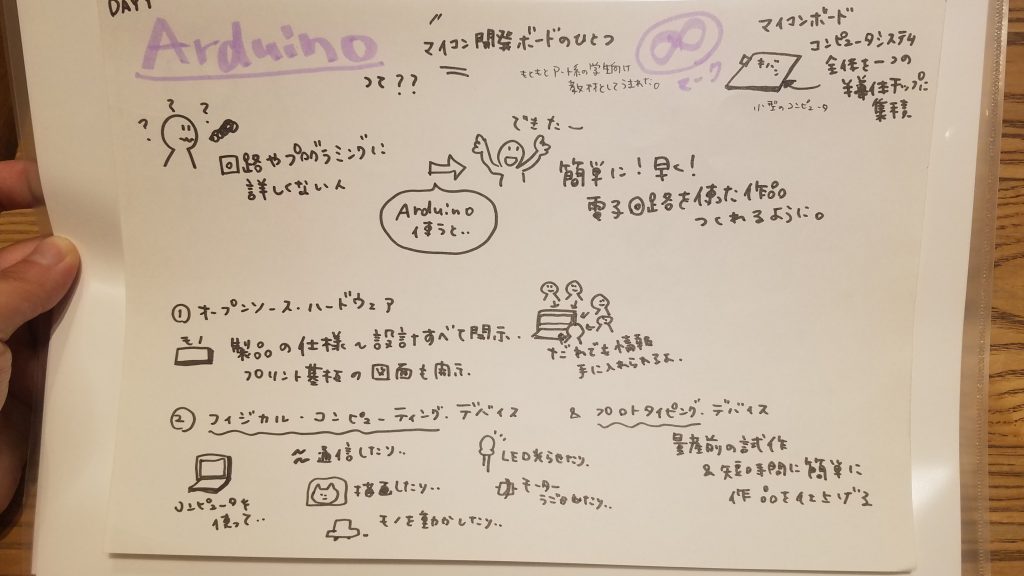 DAY1
Arduino
って??
マイコン開発ボードのひとつ
もともとアート系の学生向け
教材としてうまれた。
マーク
マイコンボード
コンピュータシステム
全体を一つの
半導体チップに
集積
きばン
小型のコンピュータ
? ? ?
回路やプログラミングに
詳しくない人
Arduino
使うと..
できたー
簡単に!早く!
電子回路を使った作品
つくれるように。
① オープンソース・ハードウェア
モノ
製品の仕様〜設計すべて開示.
プリント基板の図面も開示.
だれでも情報
手に入れられるよ.
② フィジカル・コンピューティング・デバイス
& プロトタイピング・デバイス
コンピュータを
使って..
通信したり..
描画したり..
モノを動かしたり..
LED光らせたり.
モーター
うごかしたり..
量産前の試作
&短時間に簡単に
作品を仕上げる